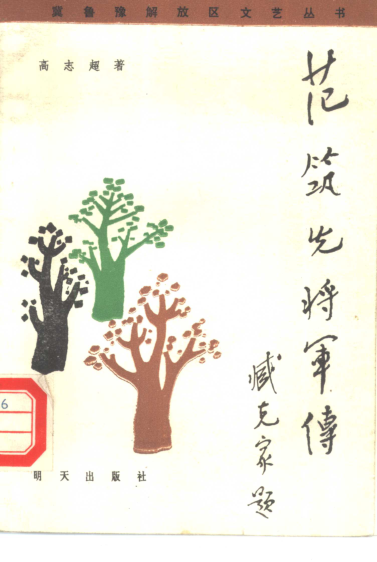 冀鲁豫解放区文艺丛书
高志超著
范筑先将军傳
臧克家题
明天出版社
6